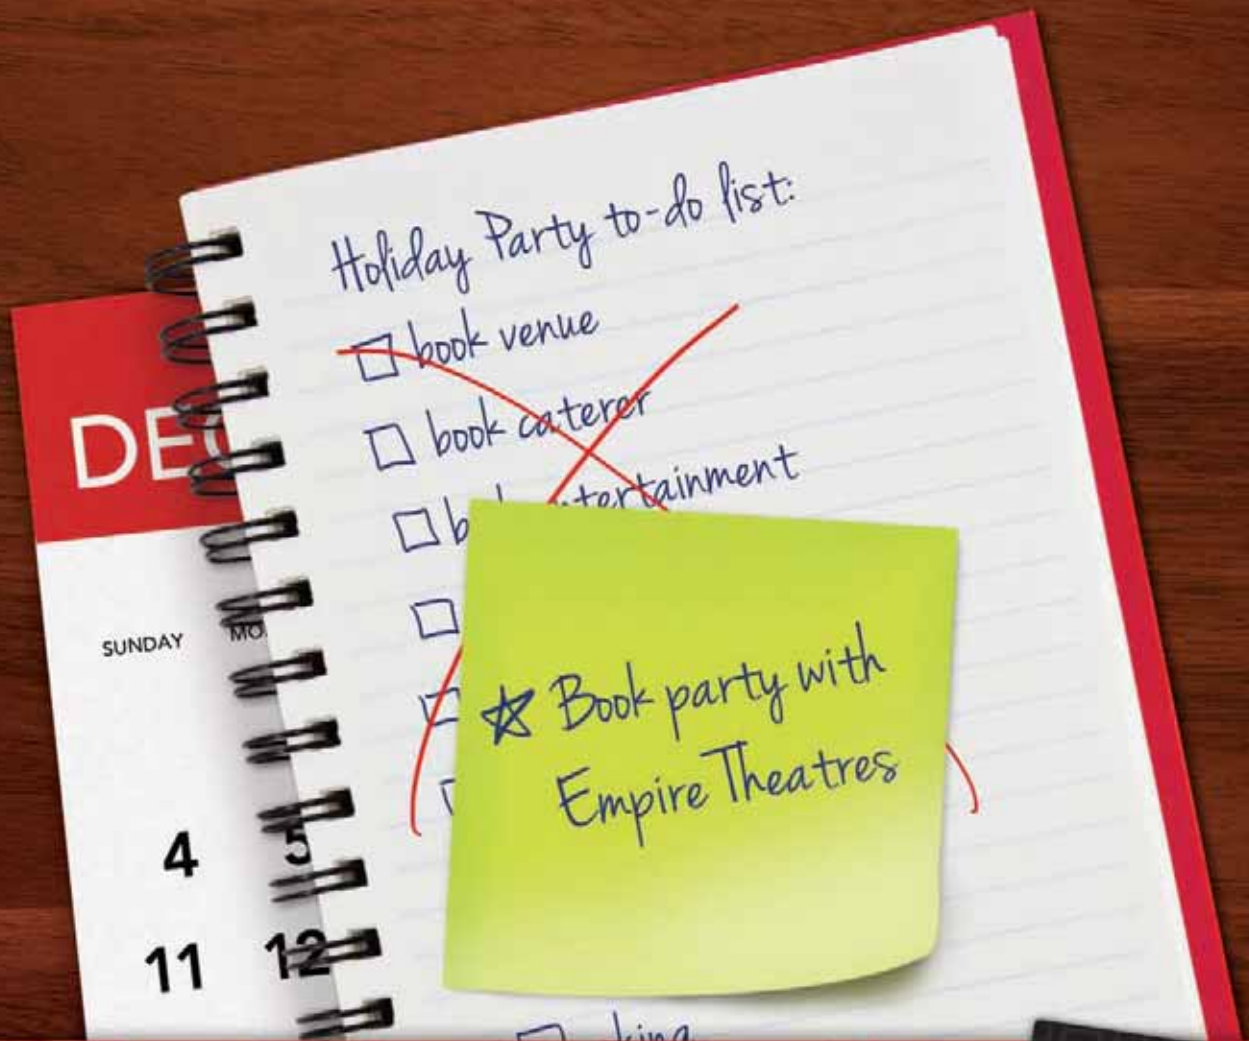 Holiday Party to-do list:
book venue
book caterer
entertainment
Book party with
Empire Theatres
DEC
SUNDAY
4 5
11 12